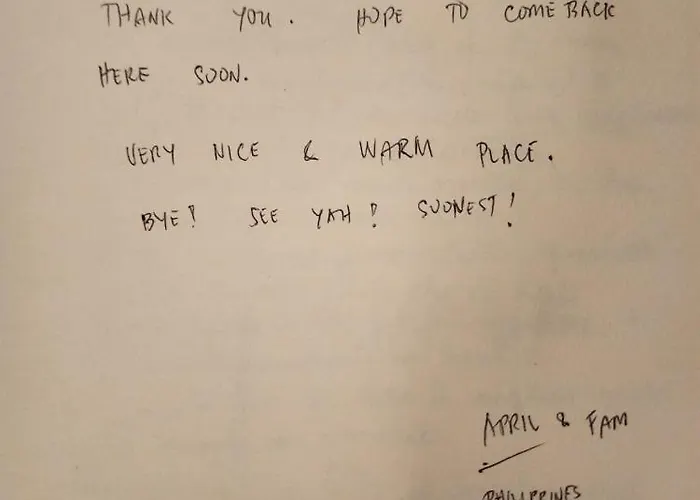 THANK YOU. HOPE TO COME BACK
HERE SOON.
VERY NICE & WARM PLACE.
BYE! SEE YAH! SOONEST!
APRIL & FAM
PHILIPPINES